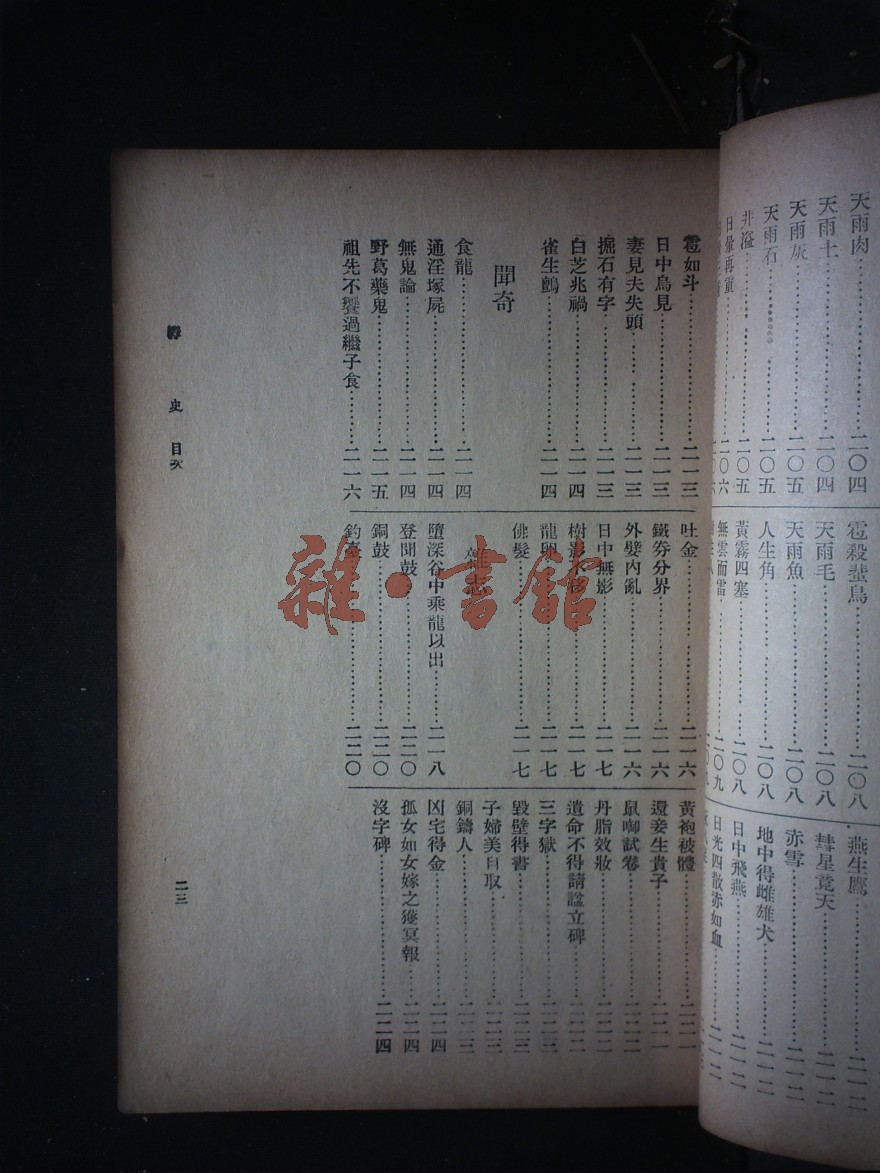 天雨肉⋯⋯二〇四
天雨土⋯⋯二〇四
天雨灰⋯⋯二〇五
天雨石⋯⋯二〇五
井溢⋯⋯二〇五
日暈再重⋯⋯二〇六
雹殺蜚鳥⋯⋯二〇八
天雨毛⋯⋯二〇八
天雨魚⋯⋯二〇八
人生角⋯⋯二〇八
黃霧四塞⋯⋯二〇八
無雲而雷⋯⋯二〇九
燕生鷹⋯⋯二一二
彗星竟天⋯⋯二一二
赤雪⋯⋯二一二
地中得雌雄犬⋯⋯二一二
日中飛燕⋯⋯二一二
日光四散赤如血⋯⋯二一二
雹如斗⋯⋯二一三
日中烏見⋯⋯二一三
妻見夫失頭⋯⋯二一三
掘石有字⋯⋯二一三
白芝兆禍⋯⋯二一四
雀生鸇⋯⋯二一四
聞奇
食龍⋯⋯二一四
通淫塚屍⋯⋯二一四
無鬼論⋯⋯二一四
野葛藥鬼⋯⋯二一五
祖先不饗過繼子食⋯⋯二一六
吐金⋯⋯二一六
鐵券分界⋯⋯二一六
外嬖內亂⋯⋯二一六
日中無影⋯⋯二一七
樹影不移⋯⋯二一七
龍卵⋯⋯二一七
佛髮⋯⋯二一七
雜志
墮深谷中乘龍以出⋯⋯二一八
登聞鼓⋯⋯二二〇
銅鼓⋯⋯二二〇
釣臺⋯⋯二二〇
黃袍被體⋯⋯二二一
還妾生貴子⋯⋯二二一
鼠啣試卷⋯⋯二二二
丹脂效妝⋯⋯二二二
遺命不得請諡立碑⋯⋯二二二
三字獄⋯⋯二二三
毀壁得書⋯⋯二二三
子婦美自取⋯⋯二二三
銅鑄人⋯⋯二二三
凶宅得金⋯⋯二二四
孤女如女嫁之獲冥報⋯⋯二二四
沒字碑⋯⋯二二四
史目次
二三
雜·書館